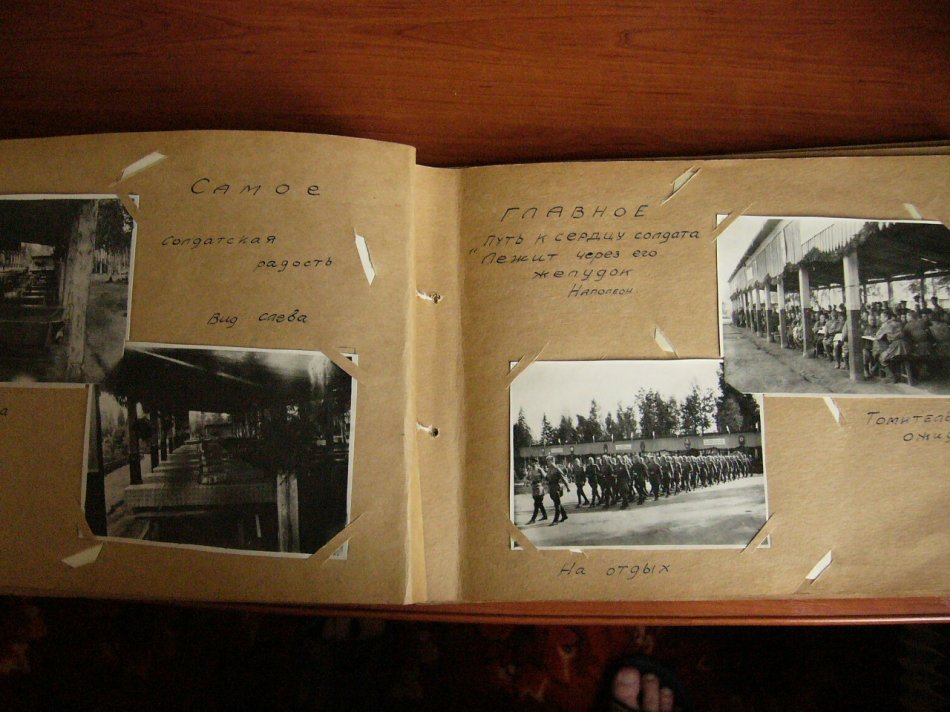 Самое
солдатская
радость
Вид слева
ГЛАВНОЕ
Путь к сердцу солдата
"Лежит через его
желудок
Наполеон
На отдых